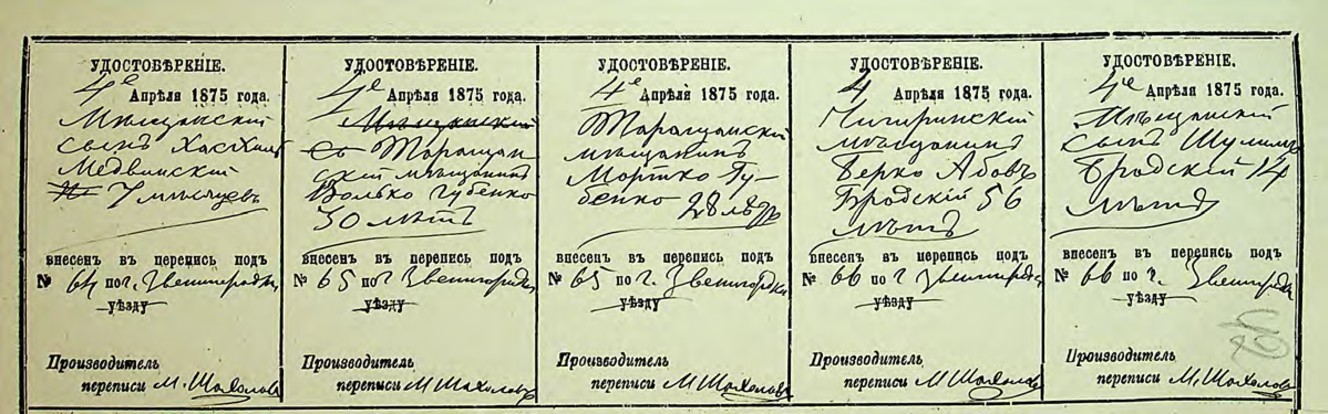 УДОСТОВѢРЕНІЕ.
4е Апрѣля 1875 года.
Мѣщанскій
сынъ
Медвинскій
7 мѣсяцевъ
внесенъ въ перепись подъ
№ 64 по г. Звенигородкѣ
уѣзду
Производитель
переписи М.
УДОСТОВѢРЕНІЕ.
4е Апрѣля 1875 года.
Мѣщанскій
Таращан
скій мѣщанинъ
Волько Губенко
50 лѣтъ
внесенъ въ перепись подъ
№ 65 по г Звенигородкѣ
уѣзду
Производитель
переписи М
УДОСТОВѢРЕНІЕ.
4е Апрѣля 1875 года.
Таращанскій
мѣщанинъ
Мортко Гу-
бенко 28 лѣтъ
внесенъ въ перепись подъ
№ 65 по г. Звенигородкѣ
уѣзду
Производитель
переписи М
УДОСТОВѢРЕНІЕ.
4 Апрѣля 1875 года.
Чигиринскій
мѣщанинъ
Берко Абовъ
Бродскій 56
лѣтъ
внесенъ въ перепись подъ
№ 66 по г Звенигородкѣ
уѣзду
Производитель
переписи М
УДОСТОВѢРЕНІЕ.
4е Апрѣля 1875 года.
Мѣщанскій
сынъ
Бродскій 14
лѣтъ
внесенъ въ перепись подъ
№ 66 по г. Звенигородкѣ
уѣзду
Производитель
переписи М.